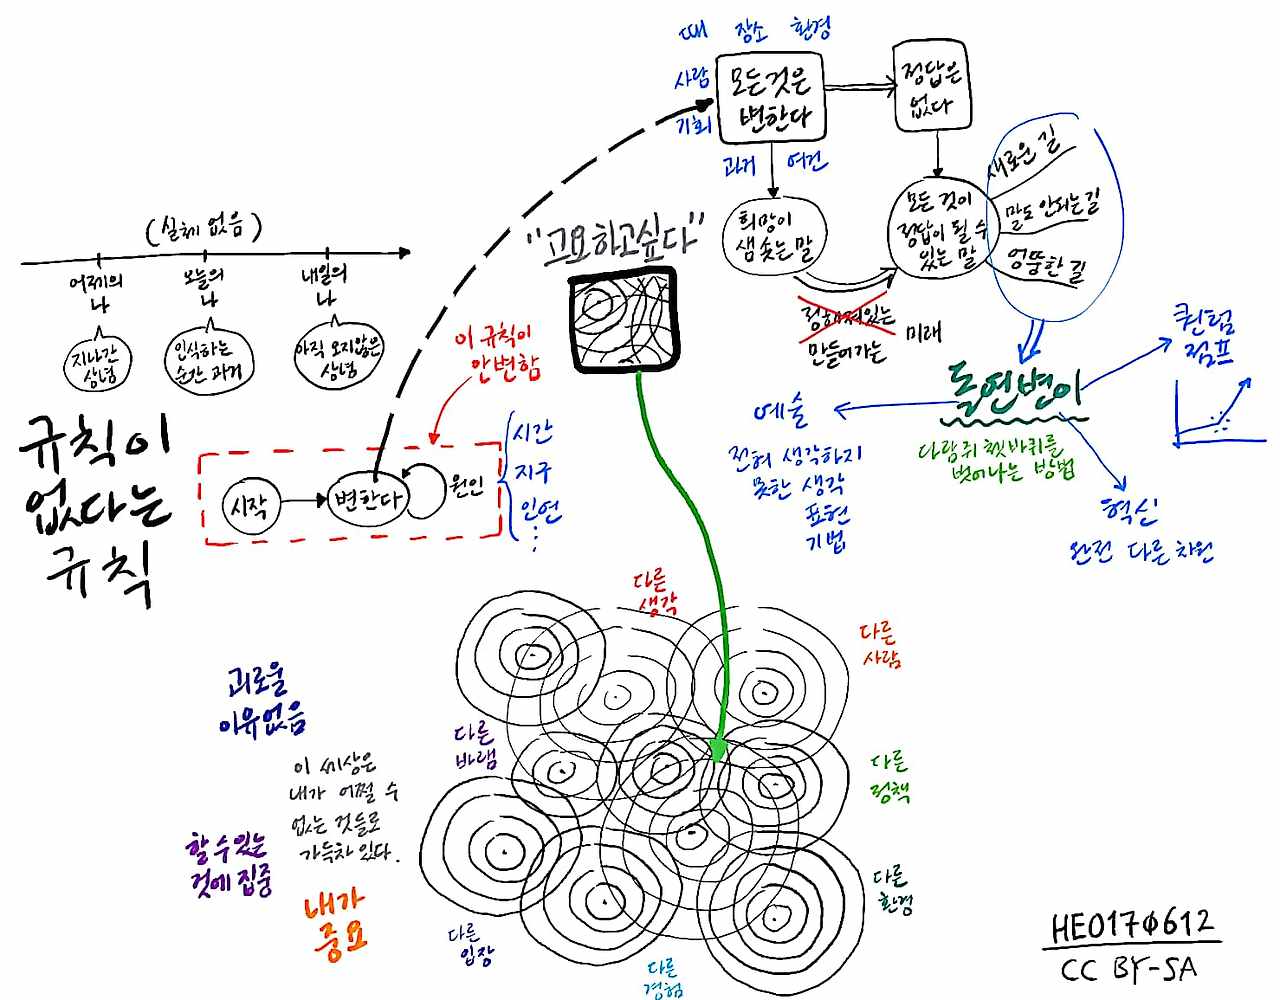 때 장소 환경
사람
기회
과거 여건
모든것은
변한다
정답은
없다
희망이
샘솟는 말
모든 것이
정답이 될 수
있는 말
새로운 길
말도 안되는 길
엉뚱한 길
정해져있는
만들어가는
미래
돌연변이
다람쥐 쳇바퀴를
벗어나는 방법
퀀텀
점프
예술
전혀 생각하지
못한 생각
표현
기법
혁신
완전 다른 차원
"고요하고싶다"
(실체 없음)
어제의
나
오늘의
나
내일의
나
지나간
상념
인식하는
순간 과거
아직 오지않은
상념
규칙이
없다는
규칙
이 규칙이
안변함
시작
변한다
원인
시간
지구
인연
⋮
다른
생각
다른
사람
다른
바램
다른
정책
다른
환경
다른
입장
다른
경험
괴로울
이유없음
이 세상은
내가 어쩔 수
없는 것들로
가득차 있다.
할 수 있는
것에 집중
내가
중요
HEO170612
CC BY-SA